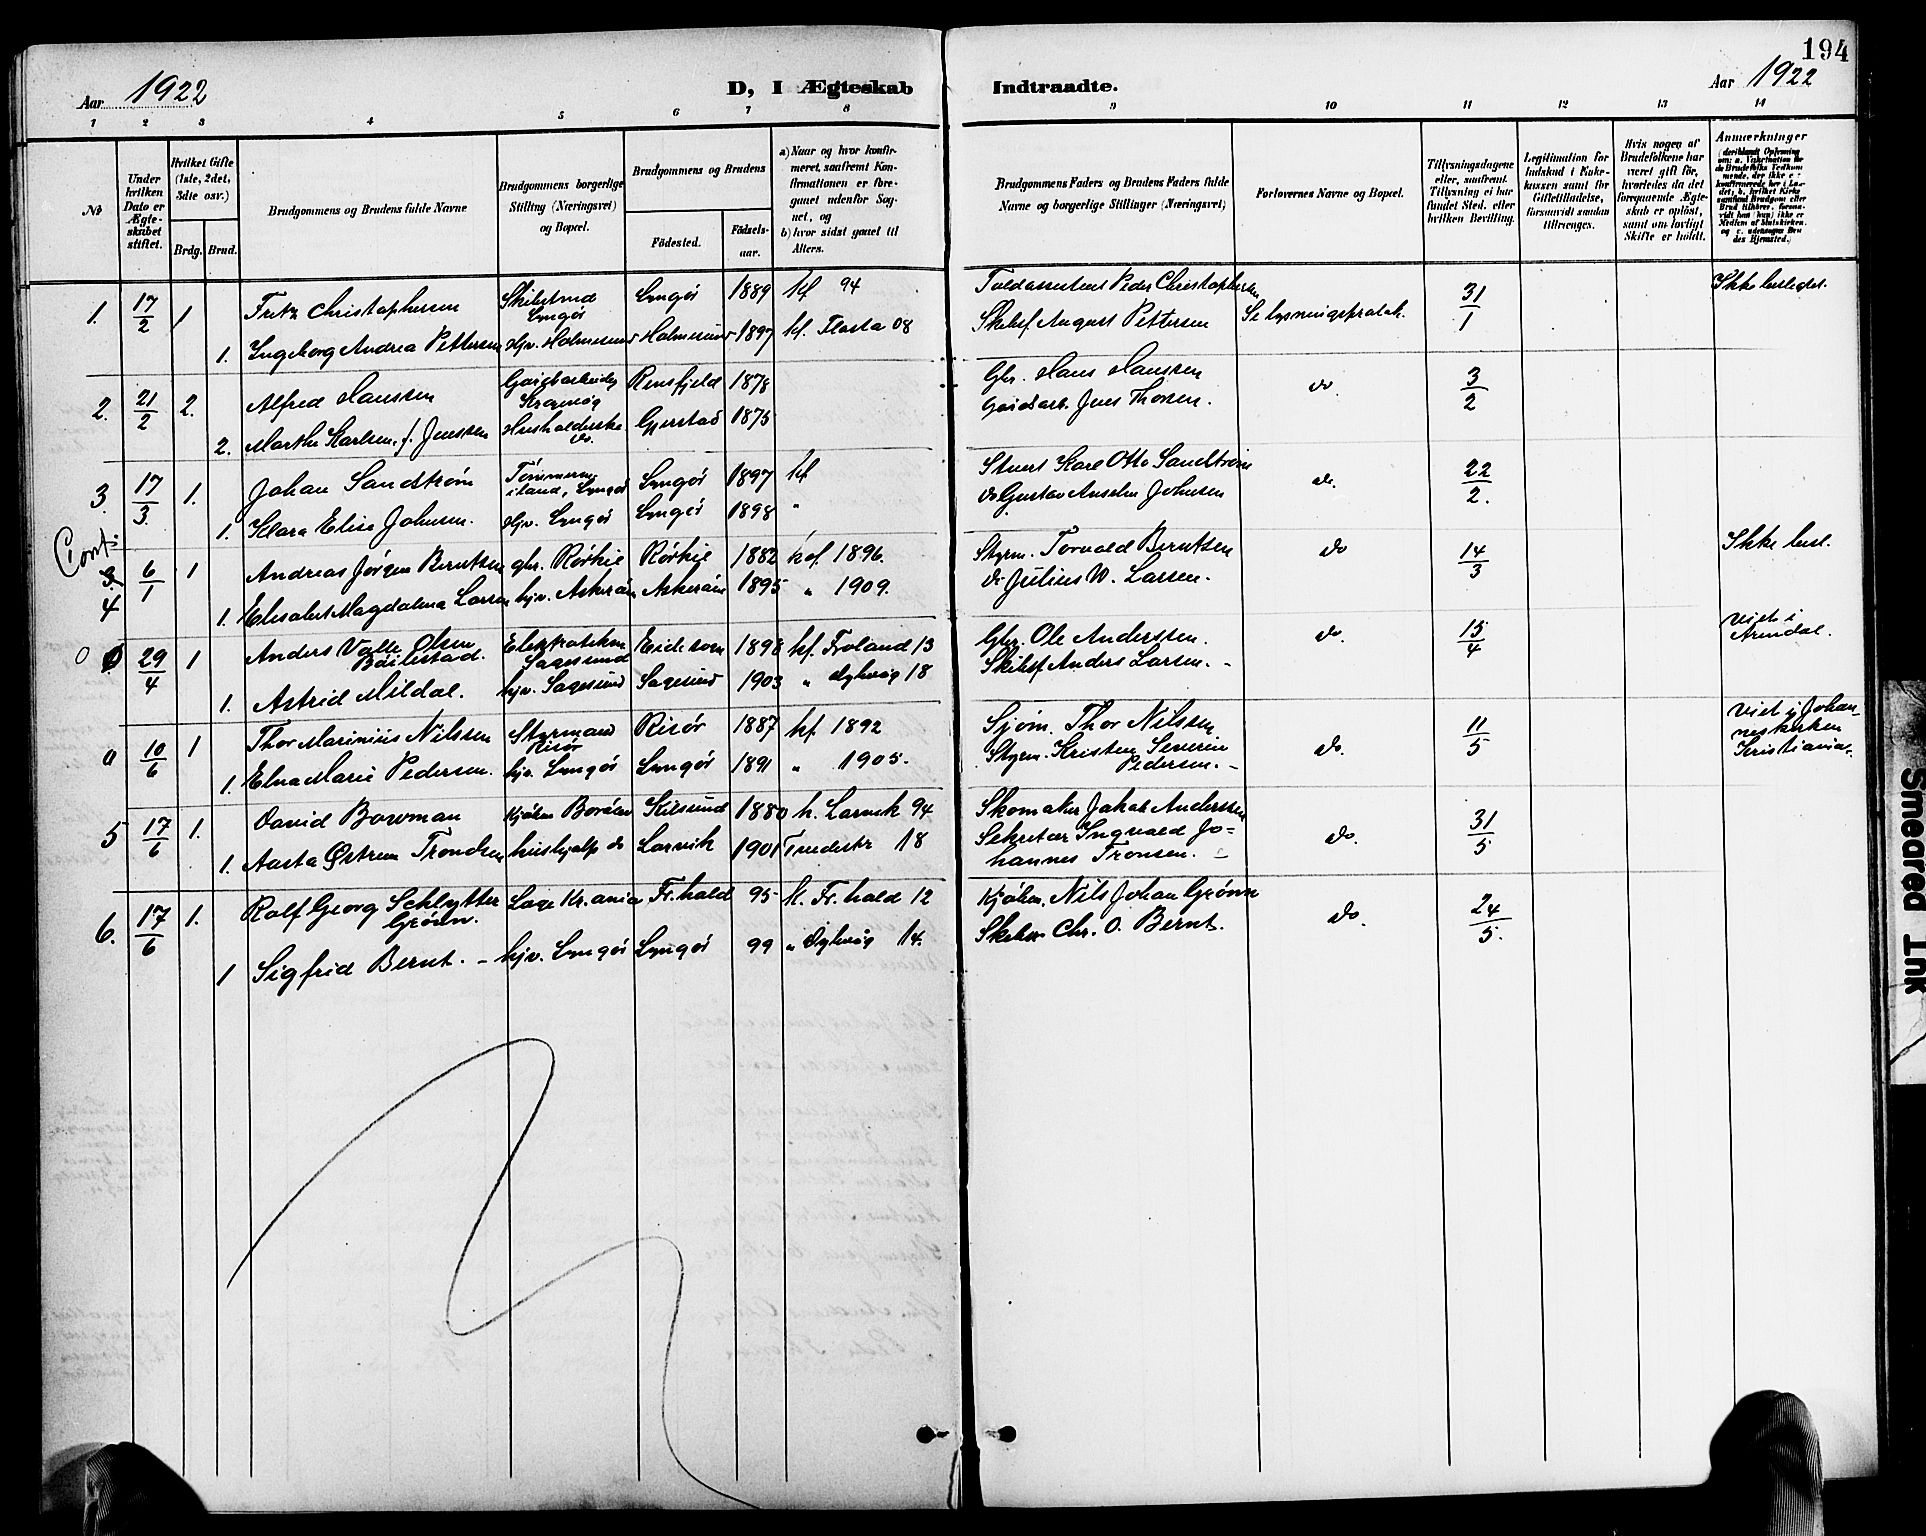 194
Aar 1922
D, I Ægteskab Indtraadte.
Aar 1922
1 2 3 4 5 6 7 8 9 10 11 12 13 14
No
Under hvilken Dato er Ægteskabet stiftet.
Hvilket Gifte (1ste, 2det, 3dte osv.)
Brdg. Brud.
Brudgommens og Brudens fulde Navne
Brudgommens borgerlige Stilling (Næringsvei) og Bopæl.
Brudgommens og Brudens
Fødested.
Fødselsaar.
a) Naar og hvor konfirmeret, saafremt Konfirmationen er foregaaet udenfor Sognet, og
b) hvor sidst gaaet til Alters.
Brudgommens Faders og Brudens Faders fulde Navne og borgerlige Stillinger (Næringsvei)
Forlovernes Navne og Bopæl.
Tillysningsdagene eller, saafremt Tillysning ei har fundet Sted, efter hvilken Bevilling.
Legitimation for Indskud i Enkekassen samt for Giftetilladelse, forsaavidt saadan tiltrænges.
Hvis nogen af Brudefolkene har været gift før, hvorledes da det foregaaende Ægteskab er opløst, samt om lovligt Skifte er holdt.
Anmærkninger
1. 17/2 1 Fritz Christophersen Skibstmd Lyngör Lyngör 1889 kf 94 Toldassistent Peder Christophersen Se lysningsprotok. 31/1 Ikke
1. Ingeborg Andrea Pettersen Hjv. Holmesund Holmesund 1897 kf. Flosta 08 Skibsf August Pettersen
2. 21/2 2. Alfred Hanssen Gaardarbeider Rensfjeld 1878 Gbr. Hans Hanssen do. 3/2
2. Marthe Karlsen, f. Jenssen Husholderske do. Gjerstad 1875 Gaardsarb. Jens
3. 17/3 1. Johan Sandstrøm Tømmerm. Lyngör Lyngör 1897 kf Stuert Karl Otto Sandstrøm do. 22/2.
1. Klara Elise Johnsen. Hjv. Lyngör Lyngör 1898 " do Gustav Anselm Johnsen
Cont:
3 4 6/1 1 Andreas Jørgen Berntsen gbr. Rörkil Rörkil 1882 kof 1896. Styrm. Torvald Berntsen do 14/3 Ikke
1. Elisabet Magdalena Larsen hjv. Askerøen Askerøen 1895 " 1909. do Julius W. Larsen.
0 29/4 1 Anders Valle Olsen Bøilestad. Sagesund 1898 kf. Froland 13 Gbr. Ole Anderssen. do. 15/4 viet i Arendal.
1. Astrid Mildal. hjv. Sagesund Sagesund 1903 " Dybvåg 18 Skibsf Anders Larsen. -
0 10/6 1 Thor Marinius Nilssen Styrmand Risör Risör 1887 kf. 1892 Sjöm. Thor Nilssen do. 11/5 viet i Johanneskirken Kristiania.
1. Elna Marie Pedersen. hjv. Lyngör Lyngör 1891 " 1905. Styrm. Kristen Severin Pedersen. -
5 17/6 1. David Bowman Kjøbm Borøen Kilsund 1880 k. Larvik 94 Skomaker Jakob Anderssen do. 31/5
1. Aasta Østrem Trondsen hushjælp do Larvik 1901 Tvedestr 18 Sekretær Ingvald Johannes Tronsen. -
6. 17/6 1. Rolf Georg Schlytter Grönn. Læge Kr.ania Fr.hald 95 k. Fr.hald 12 Kjöbm. Nils Johan Grönn do. 24/5.
1 Sigfrid Bernt. - hjv. Lyngör Lyngör 99 " Dybvåg 14. Chr. O. Bernt.
Smeared Ink